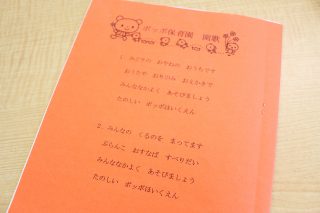 ポッポ保育園　園歌
1. みどりの　おやねの　おうちです
おうたや　おちのみ　おえかきで
みんななかよく　あそびましょう
たのしい　ポッポほいくえん
2. みんなの　くるのを　まってます
ぶらんこ　おすなば　すべりだい
みんななかよく　あそびましょう
たのしい　ポッポほいくえん